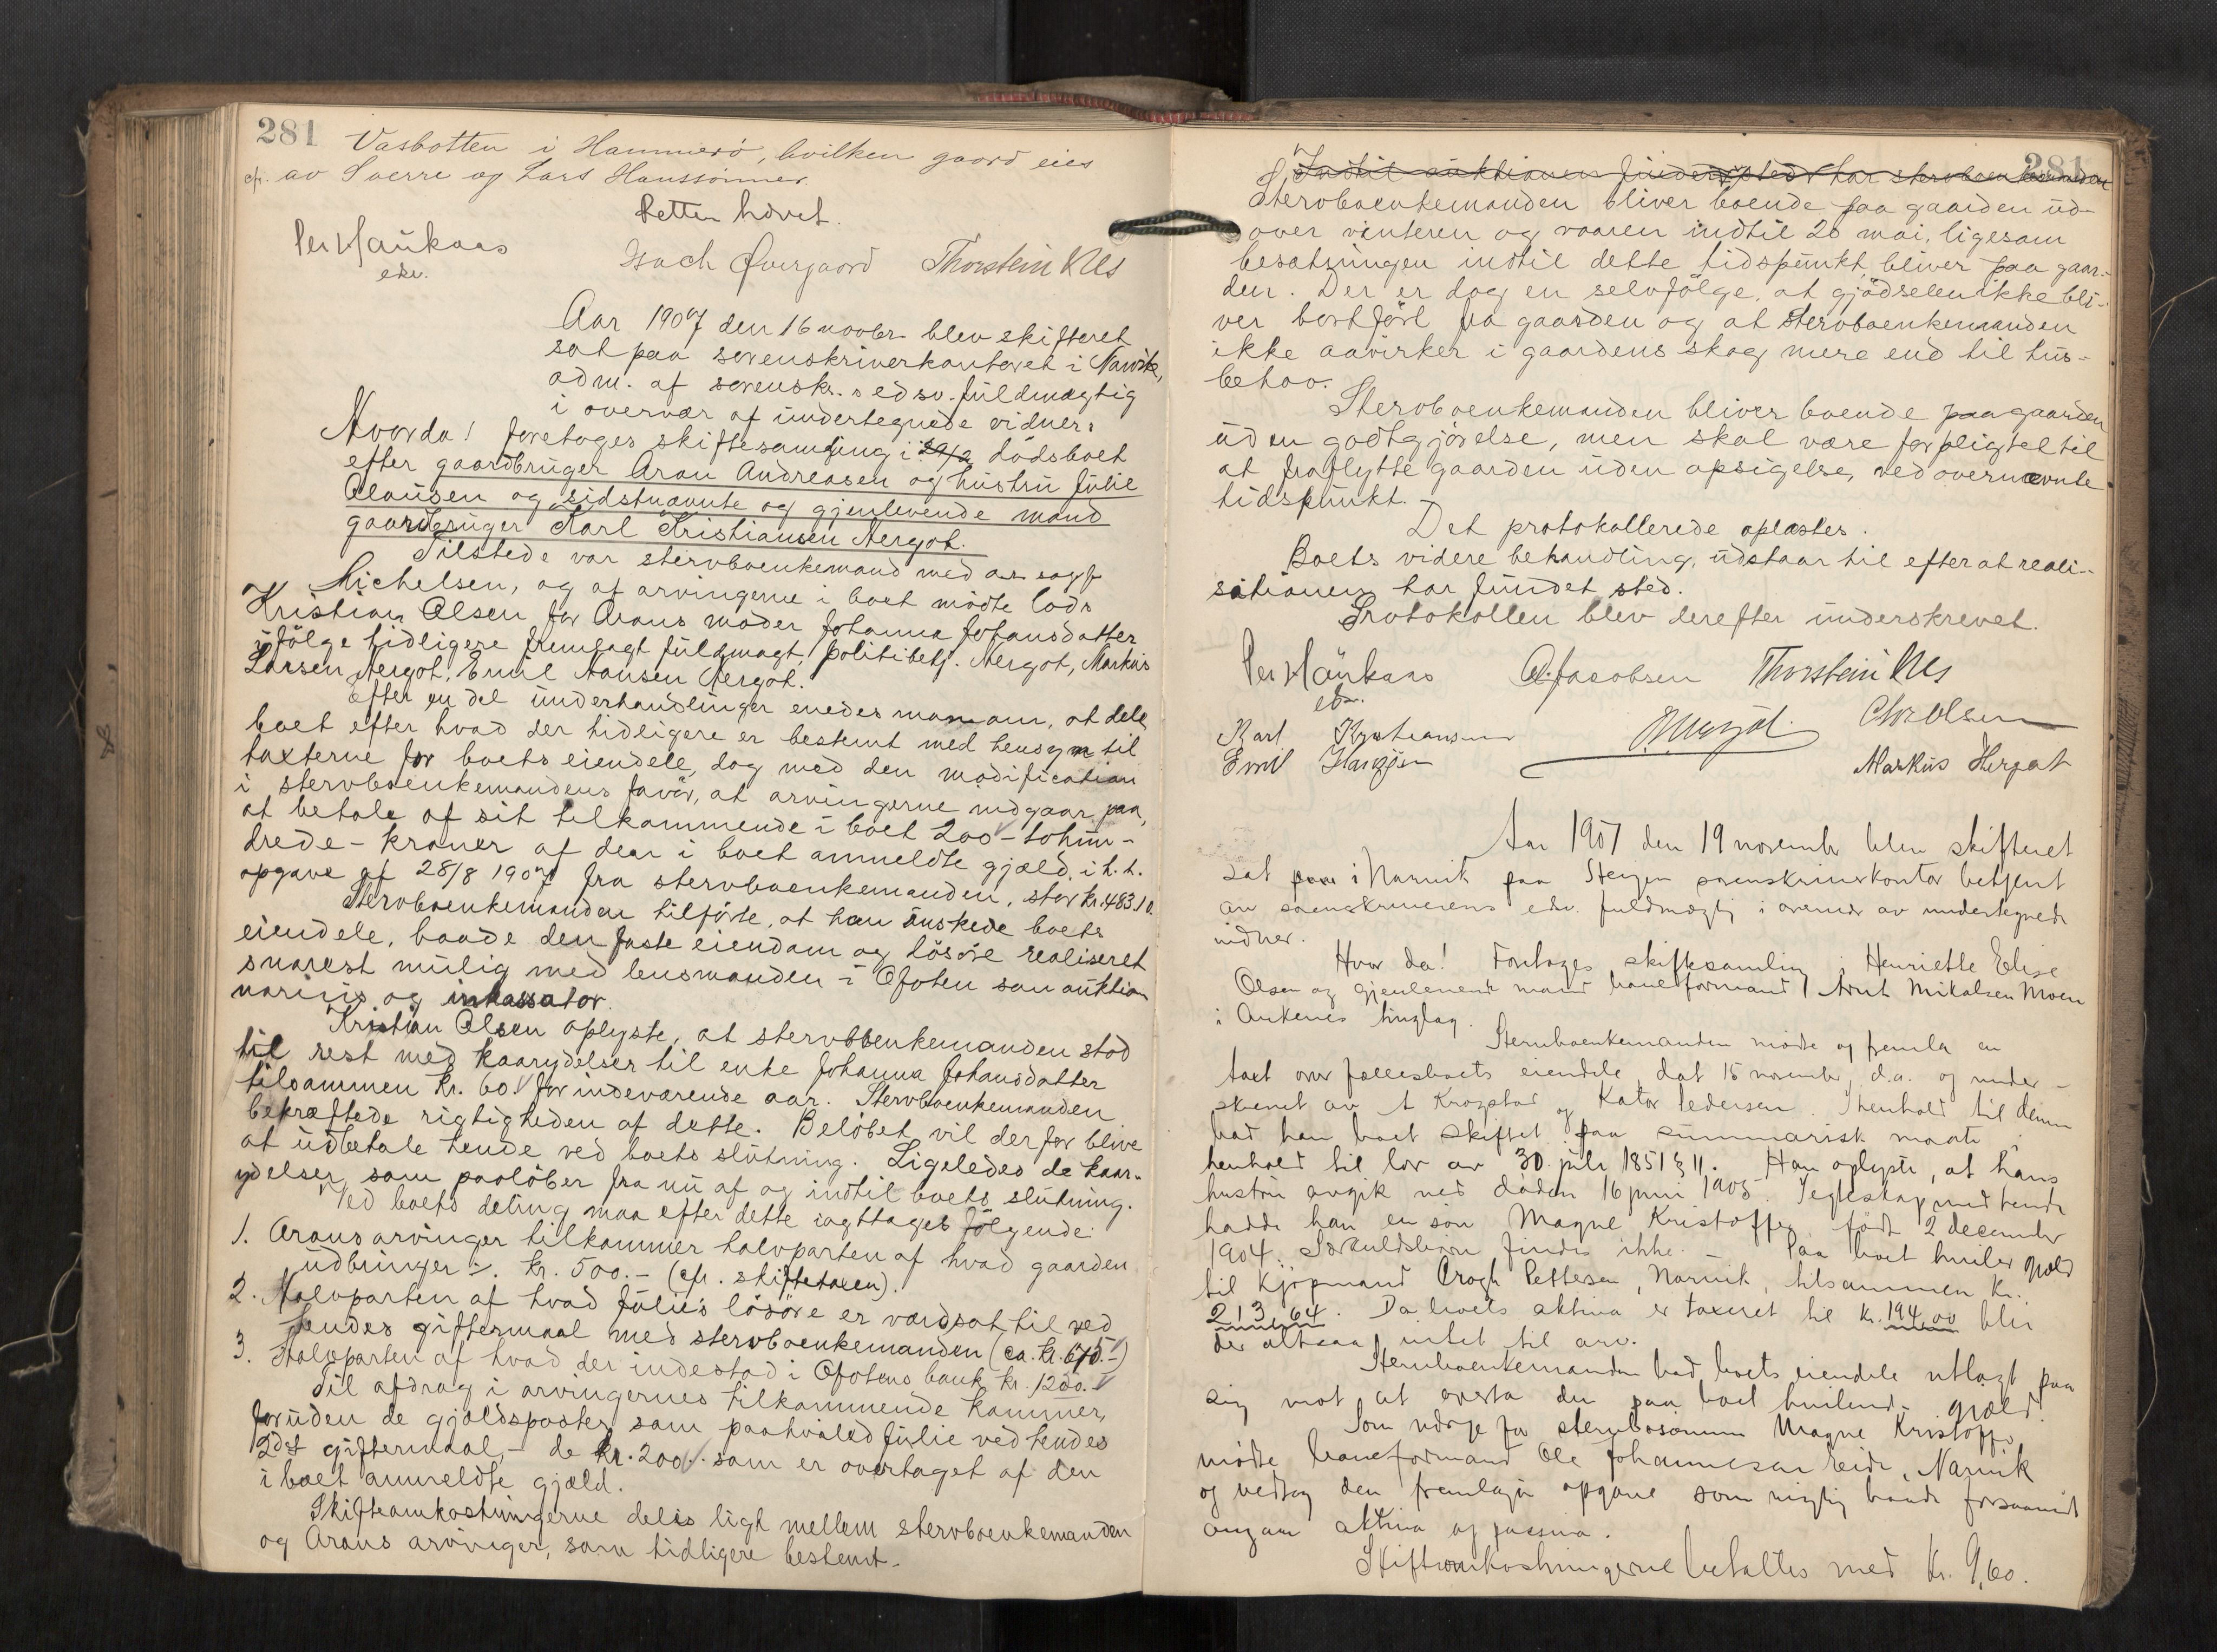 281
Vasbotten i Hammerö, hvilken gaard eies
cfr. av Sverre og Lars Hanssönner.
Retten hævet.
Per Haukaas
edsv.
Isach Overgaard Thorstein Næs
Aar 1907 den 16 novbr blev skifteret
sat paa sorenskriverkontoret i Narvik,
adm. af sorenskr.s edsv. fuldmægtig
i overvær af undertegnede vidner.
Hvorda! foretoges skiftesamling i dödsboet
efter gaardbruger Aron Andreasen og hustru Julie
Clausen og sidstnævnte og gjenlevende mand
gaardbruger Karl Kristiansen Hergot.
Tilstede var stervboenkemand med
Michelsen, og af arvingerne i boet mödte lods
Kristian Olsen for Arons moder Johanna Johansdatter
ifölge tidligere fremlagt fuldmagt, politibetj. Hergot, Markus
Larsen Hergot, Emil Hansen Hergot.
Efter en del underhandlinger enedes man om, at dele
boet efter hvad der tidligere er bestemt med hensyn til
taxterne for boets eiendele, dog med den modification
i stervboenkemandens favör, at arvingerne indgaar paa,
at betale af sit tilkommende i boet 200 – tohun-
drede – kroner af den i boet anmeldte gjæld, i h. t.
opgave af 28/8 1907 fra stervboenkemanden, stor kr. 483.10.
Stervboenkemanden tilförte, at han önskede boets
eiendele, baade den faste eiendom og lösöre realiseret
snarest mulig med lensmanden i Ofoten som auktion
narius og inkassator.
Kristian Olsen oplyste, at stervboenkemanden stod
til rest med kaarydelser til enke Johanna Johansdatter
tilsammen kr. 60. for indeværende aar. Stervboenkemanden
bekræftede rigtigheden af dette. Belöbet vil derfor blive
at udbetale hende ved boets slutning. Ligeledes de kaar-
ydelser som paalöber fra nu af og indtil boets slutning.
Ved boets deling maa efter dette iagttages fölgende:
1. Arons arvinger tilkommer halvparten af hvad gaarden
udbringer :. kr. 500.– (cfr. skiftetaxten).
2. Halvparten af hvad Julies lösöre er værdsat til ved
hendes giftermaal med stervboenkemanden (ca. kr. 675.–)
3. Halvparten af hvad der indestod i Ofotens bank kr. 1200.
Til afdrag i arvingernes tilkommende kommer,
foruden de gjældsposter som paahviled Julie ved hendes
2det giftermaal, – de kr. 200. som er overtaget af den
i boet anmeldte gjæld.
Skifteomkostningerne delis ligt mellem stervboenkemanden
og Arons arvinger, som tidligere bestemt.
281
Indtil auktionen finder sted har stervboenkemanden
Stervboenkemanden bliver boende paa gaarden ud-
over vinteren og vaaren indtil 20 mai, ligesom
besætningen indtil dette tidspunkt bliver paa gaar-
den. Der er dog en selvfölge, at gjödselen ikke bli-
ver bortfört fra gaarden og at stervboenkemanden
ikke aavirker i gaardens skog mere end til hus-
behov.
Stervboenkemanden bliver boende paa gaarden
uden godtgjörelse, men skal være forpligtet til
at fraflytte gaarden uden opsigelse, ved overnævnte
tidspunkt. –
Det protokollerede oplæstes.
Boets videre behandling, udstaar til efter at reali-
sationen har fundet sted.
Protokollen blev derefter underskrevet.
Per Haukaas A. Jacobsen Thorstein Næs
edsv.
Karl Kristiansen Hergot Chr Olsen
Emil Hansen Markus Hergot
Aar 1907 den 19 november blev skifteret
sat i Narvik paa Steigen sorenskriverkontor betjent
av sorenskriverens edsv. fuldmægtig i overvær av undertegnede
vidner.
Hvor da! Foretoges skiftesamling i Henriette Elise
Olsen og gjenlevende mand baneformand Arnt Mikalsen Moen
i Ankenes tinglag.
Stervboenkemanden mödte og fremla en
taxt over fællesboets eiendele, dat 15 november d.a. og under-
skrevet av A Krogstad og Kator Pedersen. I henhold til denne
bad han boet skiftet paa summarisk maate i
henhold til lov av 30 juli 1851 § 11. Han oplyste, at hans
hustru avgik ved döden 16 juni 1905. I egteskap med hende
hadde han en sön Magne Kristoffer födt 2 december
1904. Særkuldsbörn findes ikke. – Paa boet hviler gjæld
til kjöpmand Crogh Pettersen, Narvik, tilsammen kr.
213,64. Da boets aktiva er taxeret til kr. 194,00 blir
der altsaa intet til arv.
Stervboenkemanden bad boets eiendele utlagt paa
sig mot at overta den paa boet hvilende gjæld.
Som værge for stervbosönnen Magne Kristoffer
mödte baneformand Ole Johannesen Eide, Narvik
og vedtog den fremlagte opgave som rigtig baade forsaavidt
angaar aktiva og passiva.
Skifteomkostningerne betaltes med kr. 9,60.